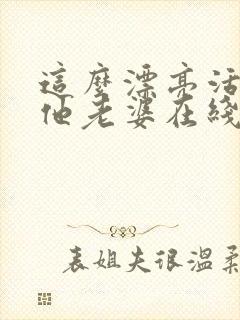 這麼漂亮活
他老婆在綫
表姐夫很溫柔